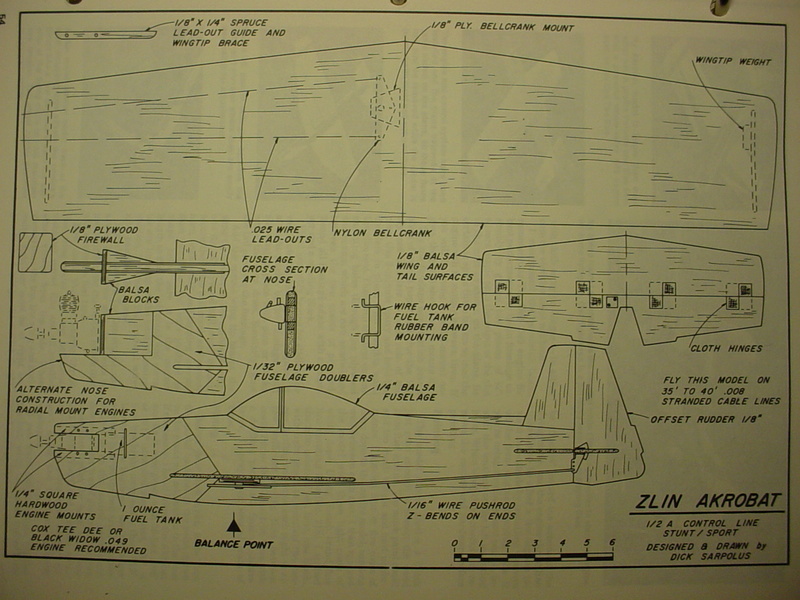 1/8" X 1/4" SPRUCE
LEAD-OUT GUIDE AND
WINGTIP BRACE
1/8" PLY. BELLCRANK MOUNT
WINGTIP WEIGHT
.025 WIRE
LEAD-OUTS
NYLON BELLCRANK
1/8" PLYWOOD
FIREWALL
BALSA
BLOCKS
FUSELAGE
CROSS SECTION
AT NOSE
1/8" BALSA
WING AND
TAIL SURFACES
WIRE HOOK FOR
FUEL TANK
RUBBER BAND
MOUNTING
CLOTH HINGES
ALTERNATE NOSE
CONSTRUCTION FOR
RADIAL MOUNT ENGINES
1/32" PLYWOOD
FUSELAGE DOUBLERS
1/4" BALSA
FUSELAGE
FLY THIS MODEL ON
35' TO 40' .008
STRANDED CABLE LINES
OFFSET RUDDER 1/8"
1/4" SQUARE
HARDWOOD
ENGINE MOUNTS
1 OUNCE
FUEL TANK
COX TEE DEE OR
BLACK WIDOW .049
ENGINE RECOMMENDED
BALANCE POINT
1/16" WIRE PUSHROD
Z-BENDS ON ENDS
0 1 2 3 4 5 6
ZLIN AKROBAT
1/2 A CONTROL LINE
STUNT/SPORT
DESIGNED & DRAWN by
DICK SARPOLUS